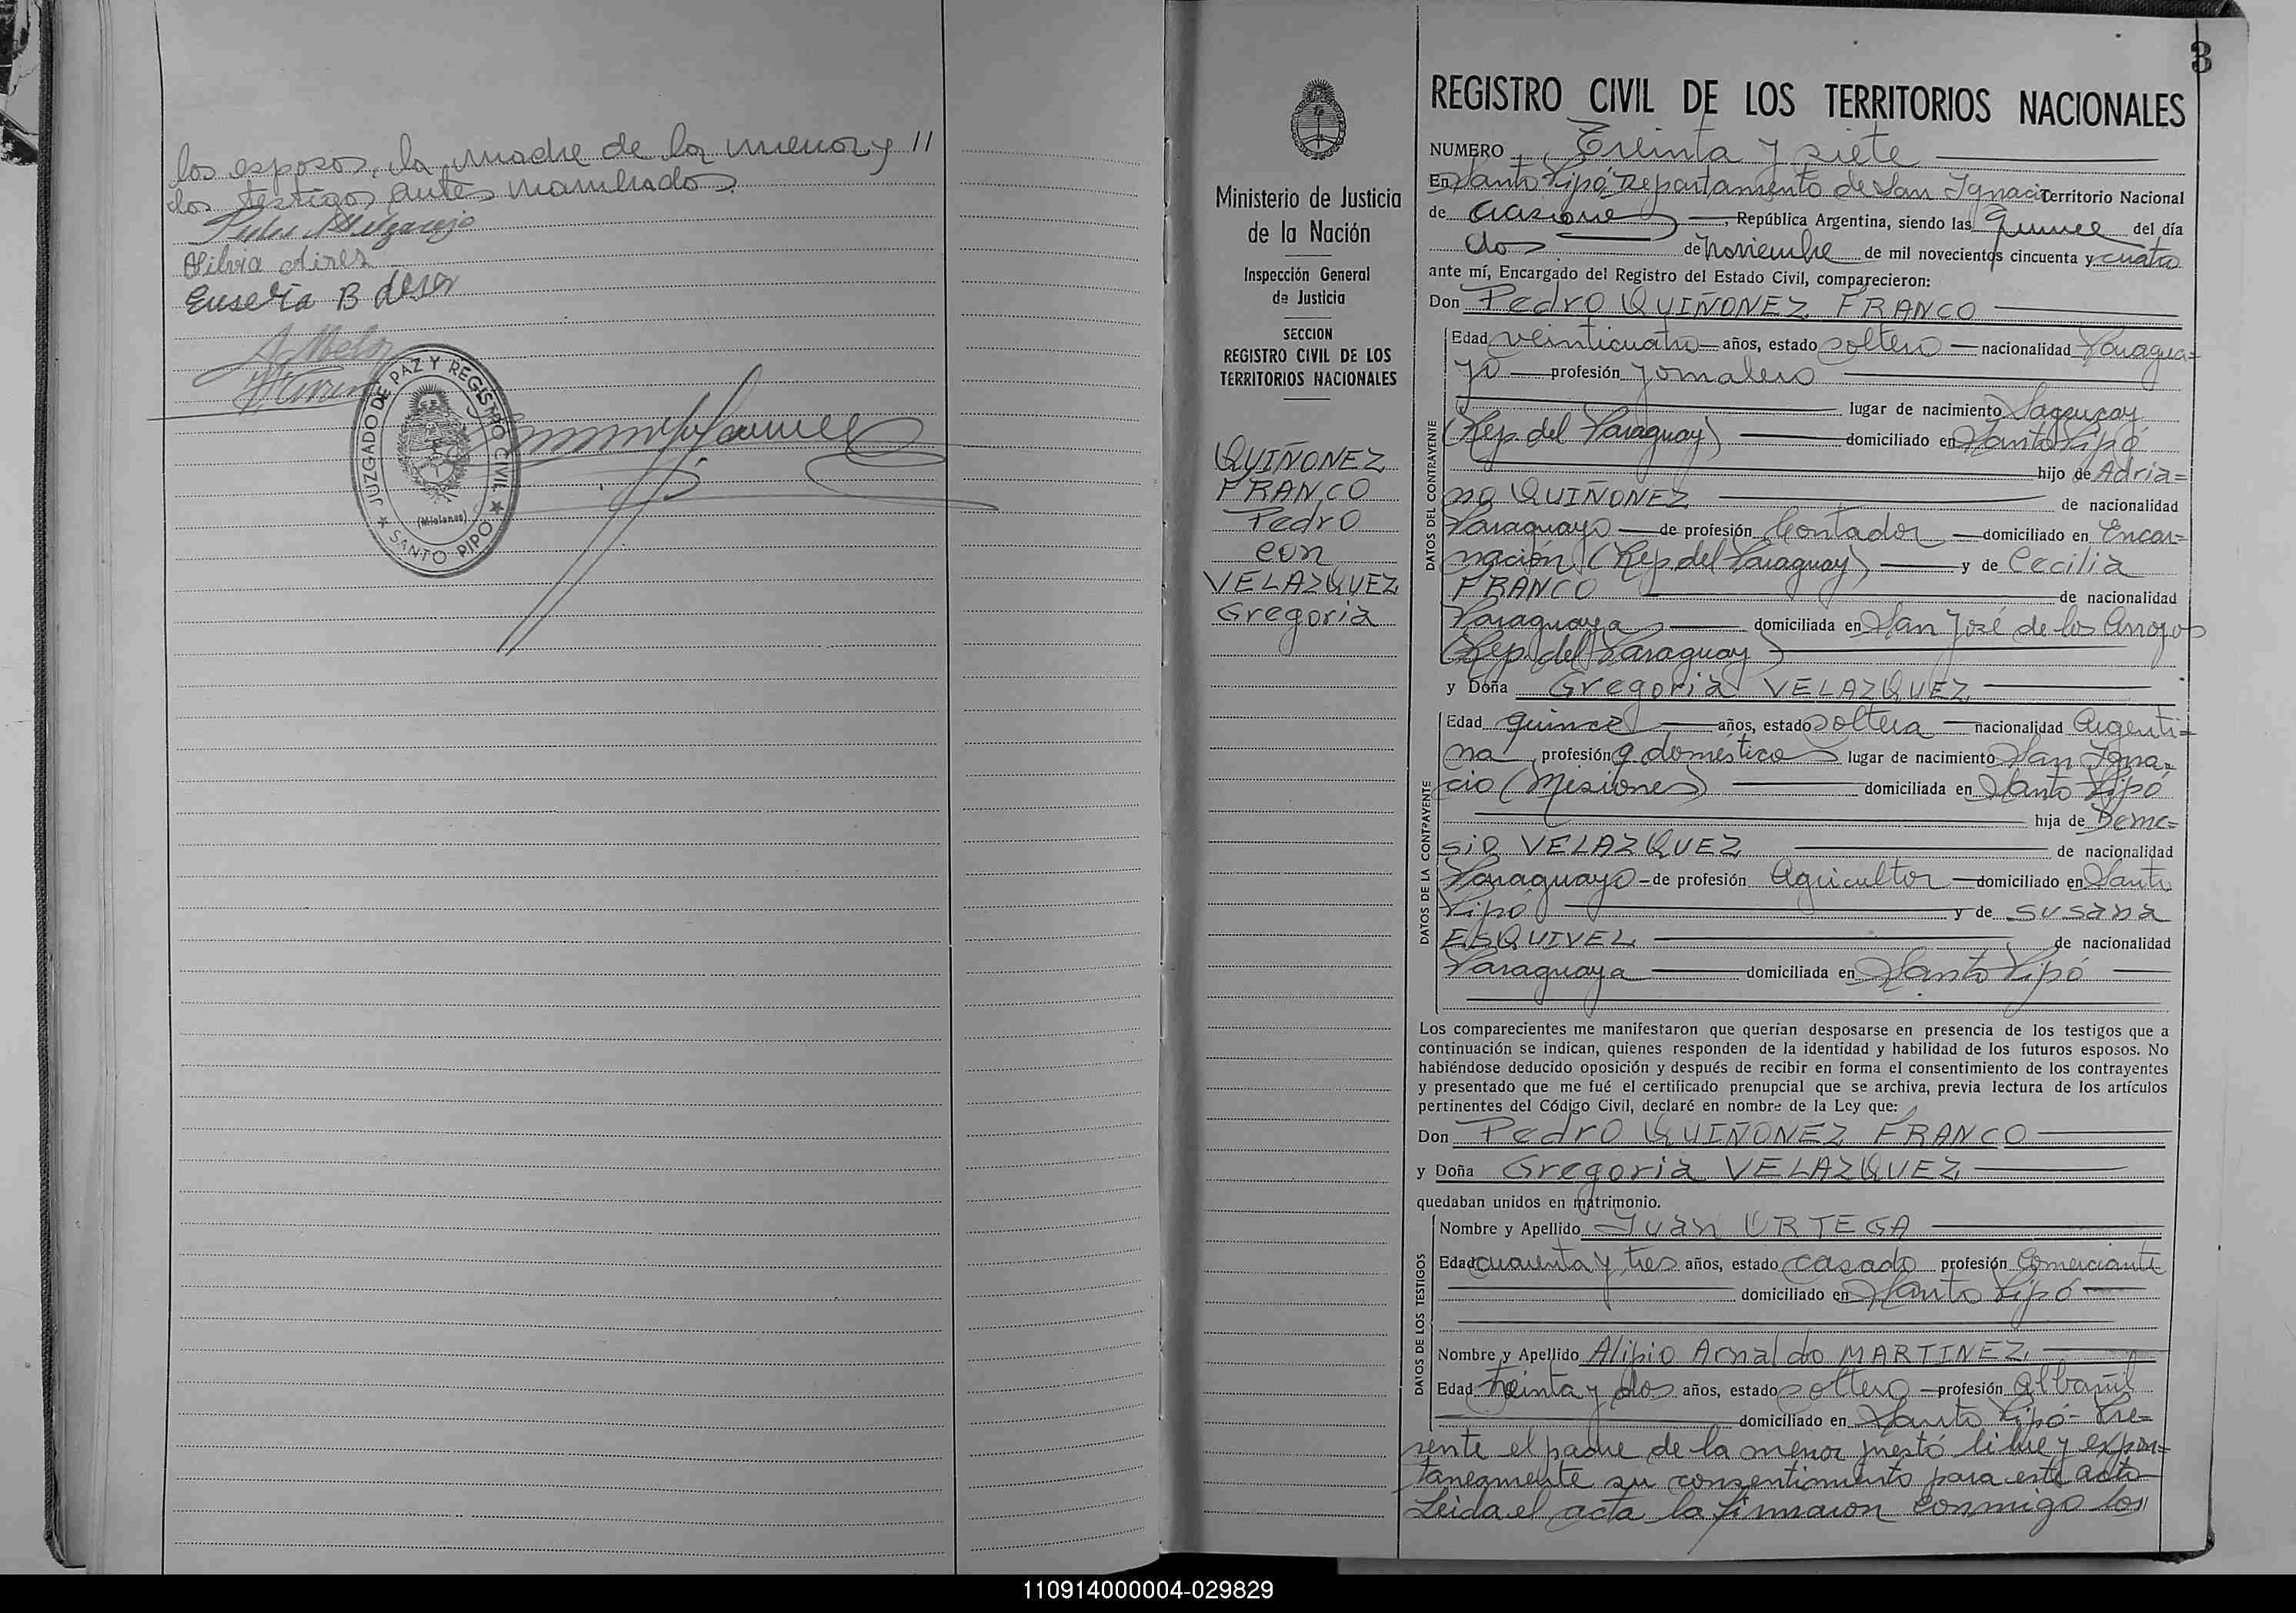 los esposos, la madre de la menor y //
los testigos antes nombrados.
Silvia Aires
Eusebia B de
JUZGADO DE PAZ Y REGISTRO CIVIL
(Misiones)
★ SANTO PIPO ★
3
Ministerio de Justicia
de la Nación
Inspección General
de Justicia
SECCION
REGISTRO CIVIL DE LOS
TERRITORIOS NACIONALES
QUIÑONEZ
FRANCO
Pedro
con
VELAZQUEZ
Gregoria
REGISTRO CIVIL DE LOS TERRITORIOS NACIONALES
NUMERO Treinta y siete
En Santo Pipó Departamento de San Ignacio Territorio Nacional
de Misiones, República Argentina, siendo las quince del día
dos de noviembre de mil novecientos cincuenta y cuatro
ante mí, Encargado del Registro del Estado Civil, comparecieron:
Don Pedro QUIÑONEZ FRANCO
DATOS DEL CONTRAYENTE
Edad veinticuatro años, estado soltero nacionalidad Paragua=
yo profesión Jornalero
lugar de nacimiento Sapucay
(Rep. del Paraguay) domiciliado en Santo Pipó
hijo de Adria=
no QUIÑONEZ de nacionalidad
Paraguayo de profesión Contador domiciliado en Encar=
nación (Rep. del Paraguay) y de Cecilia
FRANCO de nacionalidad
Paraguaya domiciliada en San José de los Arroyos
(Rep. del Paraguay)
y Doña Gregoria VELAZQUEZ
DATOS DE LA CONTRAYENTE
Edad quince años, estado soltera nacionalidad Argenti=
na profesión q. domésticos lugar de nacimiento San Igna=
cio (Misiones) domiciliada en Santo Pipó
hija de Deme=
sio VELAZQUEZ de nacionalidad
Paraguayo de profesión Agricultor domiciliado en Santo
Pipó y de Susana
ESQUIVEL de nacionalidad
Paraguaya domiciliada en Santo Pipó
Los comparecientes me manifestaron que querían desposarse en presencia de los testigos que a
continuación se indican, quienes responden de la identidad y habilidad de los futuros esposos. No
habiéndose deducido oposición y después de recibir en forma el consentimiento de los contrayentes
y presentado que me fué el certificado prenupcial que se archiva, previa lectura de los artículos
pertinentes del Código Civil, declaré en nombre de la Ley que:
Don Pedro QUIÑONEZ FRANCO
y Doña Gregoria VELAZQUEZ
quedaban unidos en matrimonio.
DATOS DE LOS TESTIGOS
Nombre y Apellido Juan ORTEGA
Edad cuarenta y tres años, estado casado profesión Comerciante
domiciliado en Santo Pipó
Nombre y Apellido Alipio Arnaldo MARTINEZ
Edad treinta y dos años, estado soltero profesión albañil
domiciliado en Santo Pipó - Pre=
sente el padre de la menor prestó libre y expon=
taneamente su consentimiento para este acto
Leida el acta la firmaron conmigo los //
110914000004-029829